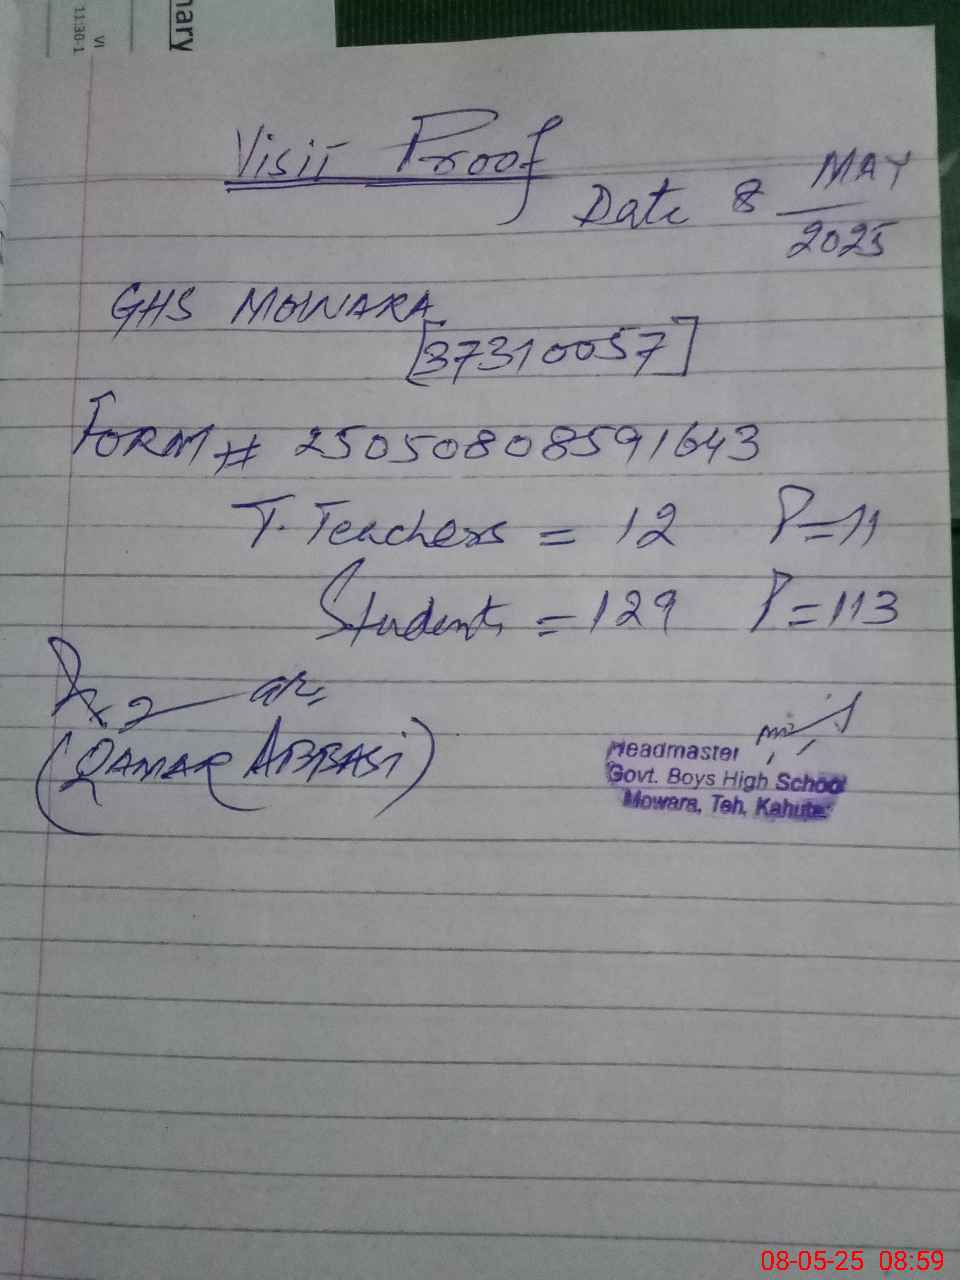 nary
VI
11:30-1
Visit Proof
Date 8 MAY
2025
GHS MOWARA
[37310057]
FORM # 25050808591643
T. Teachers = 12 P=11
Students = 129 P=113
(QAMAR ABBASI)
Headmaster
Govt. Boys High School
Mowara, Teh, Kahuta
08-05-25 08:59